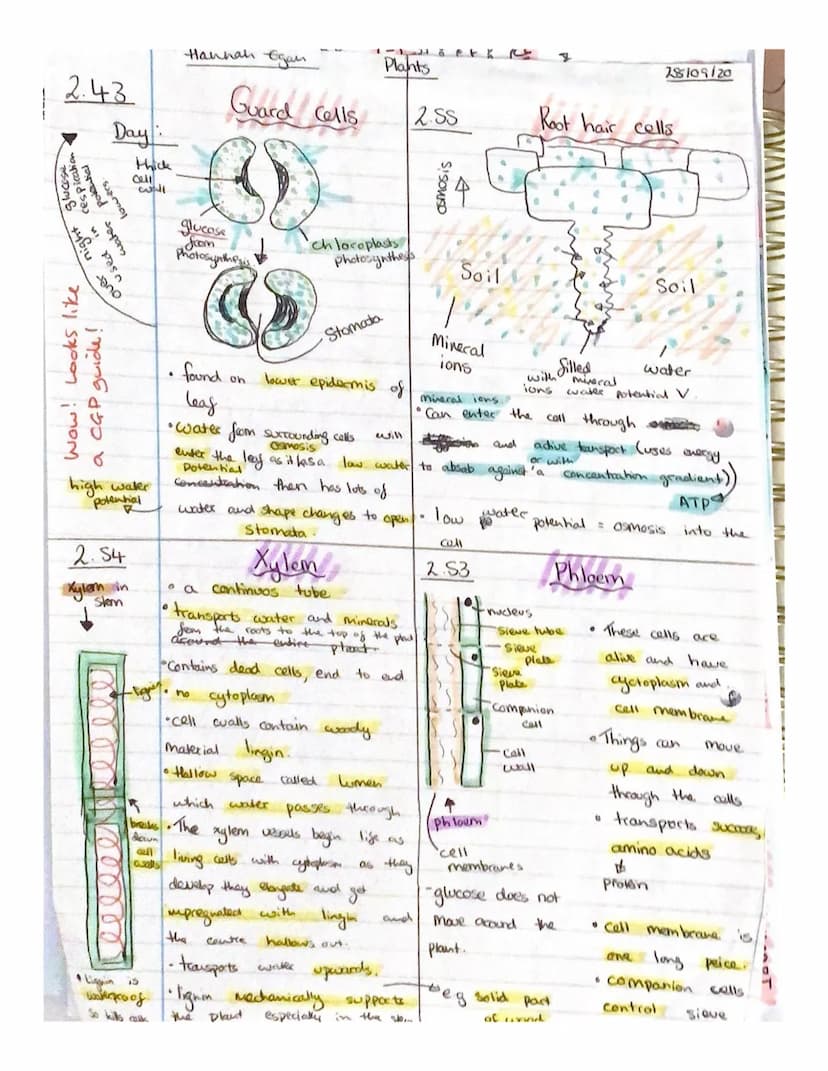 Hannah Egan
Plants
28/09/20
2.43
Guard Cells
Day:
thick
cell
wall
glucose
from
photosynthesis
chloroplasts
photosynthesis
Stomata
over night glucose
used in respiration
lowers
water potential
Wow! Looks like
a CGP guide!
• found on lower epidermis of
leaf
• water from surrounding cells will
osmosis
enter the leaf as it has a low water
potential
concentration then has lots of
high water
potential
water and shape changes to open
Stomata.
2.55
Root hair cells
osmosis
Soil
Soil
Mineral
ions
filled
with mineral
ions water potential V.
water
mineral ions
• Can enter the cell through
and active transport (uses energy
or with
to absab against a concentration gradient))
ATP
• low water potential = osmosis into the
cell
2.54
Xylem
Xylem in
stem
lignin
breaks
down
cell
walls
• Lignin is
waterproof
so kills cells
• a continuos tube
• transports water and minerals
from the roots to the top of the plant
around the entire plant.
• contains dead cells, end to end
• no cytoplasm
• cell walls contain woody
material lingin.
• Hallow space called lumen
which water passes through
• The xylem vessels begin life as
living cells with cytoplasm as they
develop they elongate and get
impregnated with lingin and
the centre hallows out.
• transports water upwards.
• lignin mechanically supports
the plant especially in the stem
2.53
Phloem
nucleus
Sieve tube
Sieve
plate
Sieve
plate
Companion
cell
Cell
wall
phloem
cell
membranes
- glucose does not
move around the
plant.
eg solid part
of wood
• These cells are
alive and have
cyctoplasm and
cell membrane
• Things can move
up and down
through the cells
• transports sucrose,
amino acids
protein
• cell membrane is
one long peice.
• companion cells
control sieve